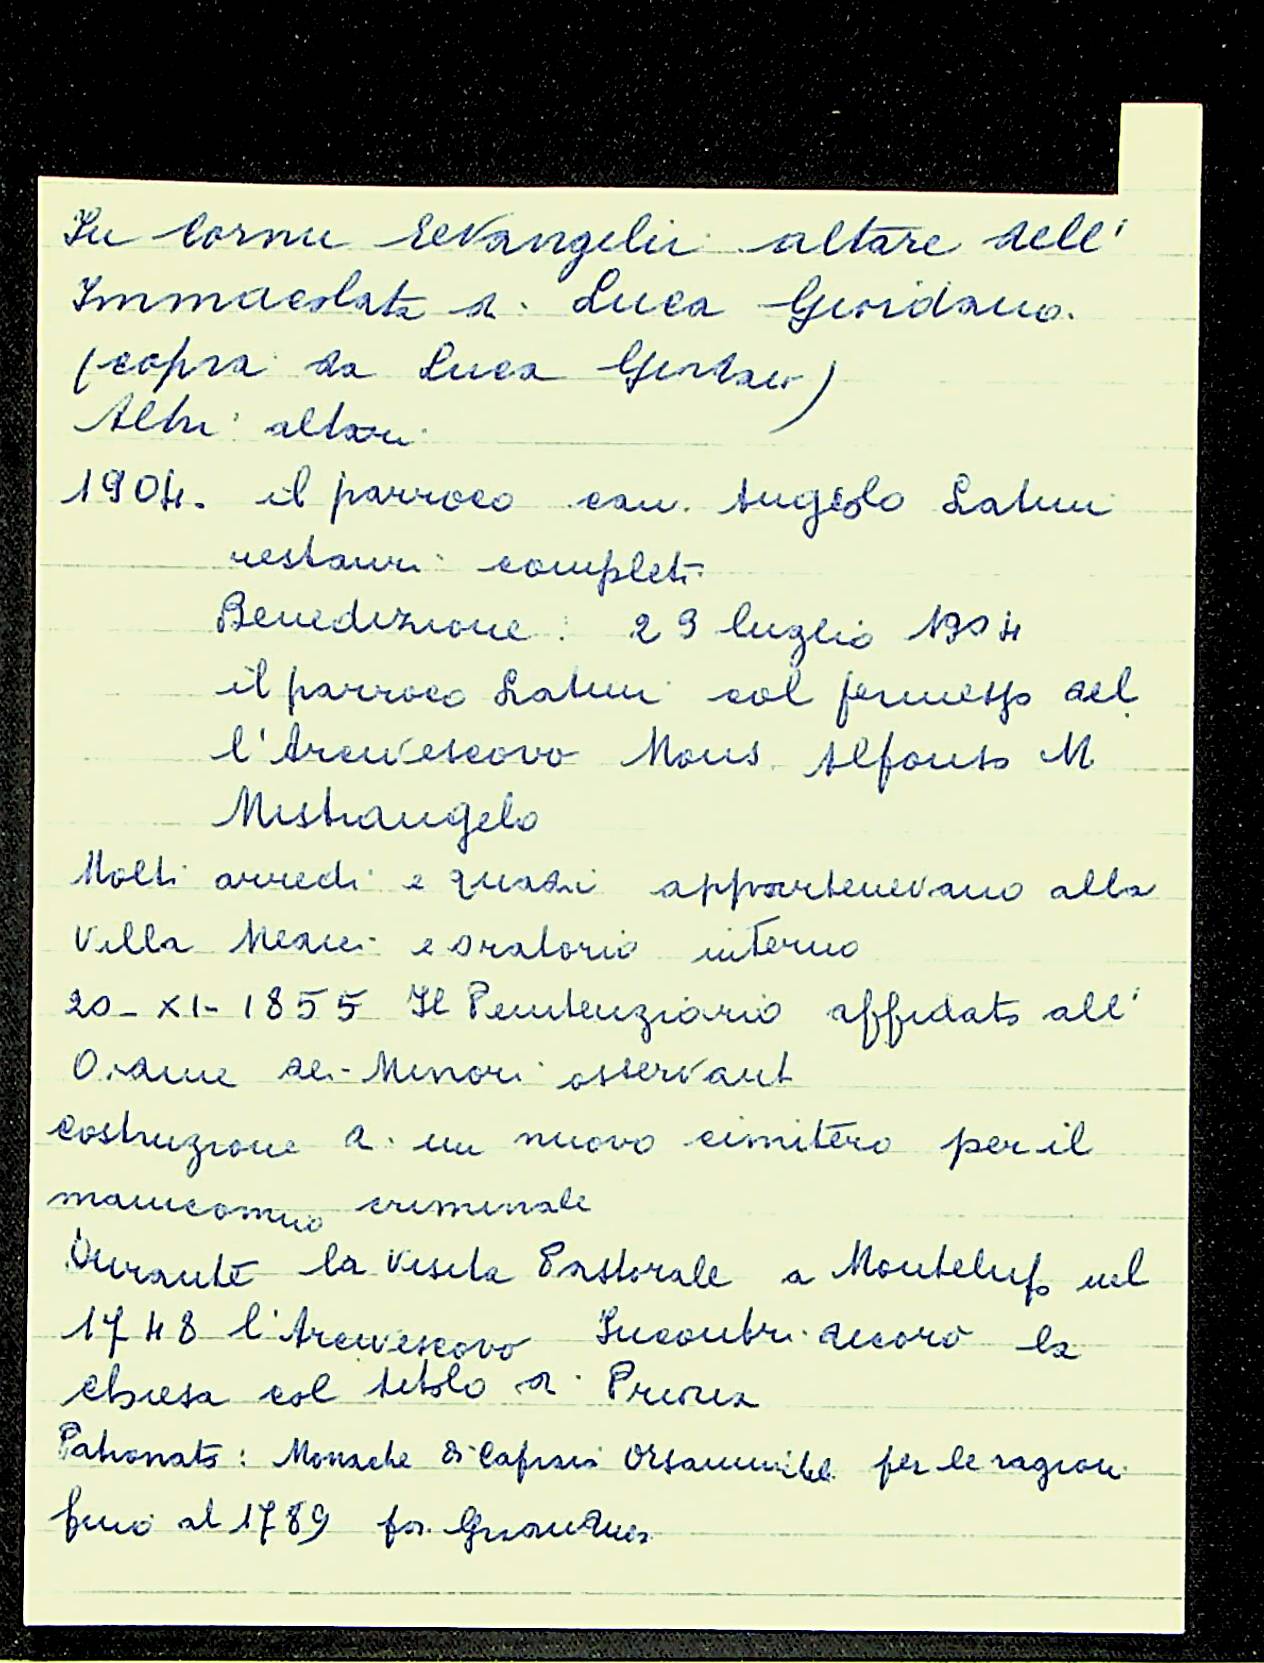 In Cornu Eevangelii altare dell'
Immacolata di Luca Giordano.
(copia da Luca Giordano)
Altri altari
1904. il parroco can. Angelo Latini
restauri completi
Benedizione : 29 luglio 1904
il parroco Latini col permesso del
l'Arcivescovo Mons. Alfonso M
Mistrangelo
Molti arredi e quadri appartenevano alla
Villa Meacci e oratorio interno
20-XI-1855 Il Penitenziario affidato all'
Ordine dei Minori osservant
costruzione di un nuovo cimitero per il
manicomio criminale
Durante la visita Pastorale a Montelupo nel
1748 l'Arcivescovo Incontri decorò la
chiesa col titolo di Prioria
Patronato : Monache di Capraia Orsanmichel per le ragioni
fino al 1789 poi Granduca